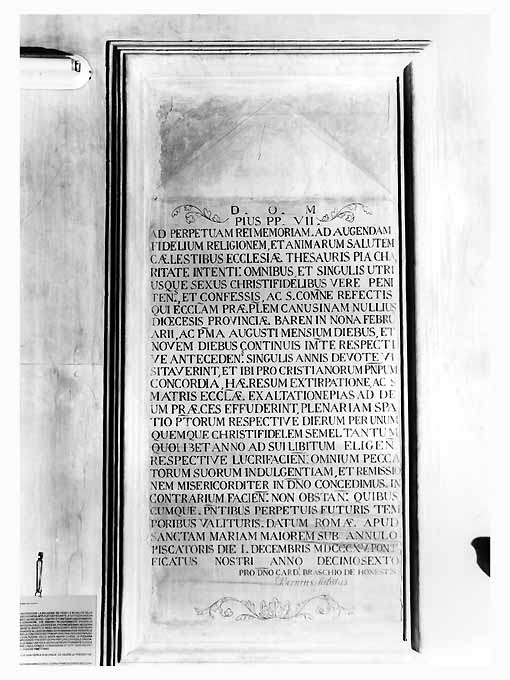 D. O. M
PIUS PP. VII.
AD PERPETUAM REI MEMORIAM. AD AUGENDAM
FIDELIUM RELIGIONEM, ET ANIMARUM SALUTEM
CÆLESTIBUS ECCLESIÆ THESAURIS PIA CHA
RITATE INTENTI. OMNIBUS, ET SINGULIS UTRI
USQUE SEXUS CHRISTIFIDELIBUS VERE PENI
TEN:, ET CONFESSIS, AC S. COM̄NE REFECTIS
QUI ECCLAM PRÆP̄LEM CANUSINAM NULLIUS
DIŒCESIS PROVINCIÆ BAREN IN NONA FEBRU
ARII, AC P̄MA AUGUSTI MENSIUM DIEBUS, ET
NOVEM DIEBUS CONTINUIS IM̄TE RESPECTI
VE ANTECEDEN: SINGULIS ANNIS DEVOTE VI
SITAVERINT, ET IBI PRO CRISTIANORUM P̄NPUM
CONCORDIA, HÆRESUM EXTIRPATIONE, AC S
MATRIS ECCLÆ EXALTATIONE PIAS AD DE
UM PRÆCES EFFUDERINT, PLENARIAM SPA
TIO P̄TORUM RESPECTIVE DIERUM PER UNUM
QUEMQUE CHRISTIFIDELEM SEMEL TANTUM
QUOLIBET ANNO AD SUI LIBITUM ELIGEN̄
RESPECTIVE LUCRIFACIEN̄. OMNIUM PECCA
TORUM SUORUM INDULGENTIAM, ET REMISSIO
NEM MISERICORDITER IN DN̄O CONCEDIMUS. IN
CONTRARIUM FACIEN: NON OBSTAN: QUIBUS
CUMQUE. PN̄TIBUS PERPETUIS FUTURIS TEM
PORIBUS VALITURIS. DATUM ROMÆ APUD
SANCTAM MARIAM MAIOREM SUB ANNULO
PISCATORIS DIE I. DECEMBRIS MDCCCXV. PONT
FICATUS NOSTRI ANNO DECIMOSEXTO
PRO DN̄O CARD. BRASCHIO DE HONESTIS